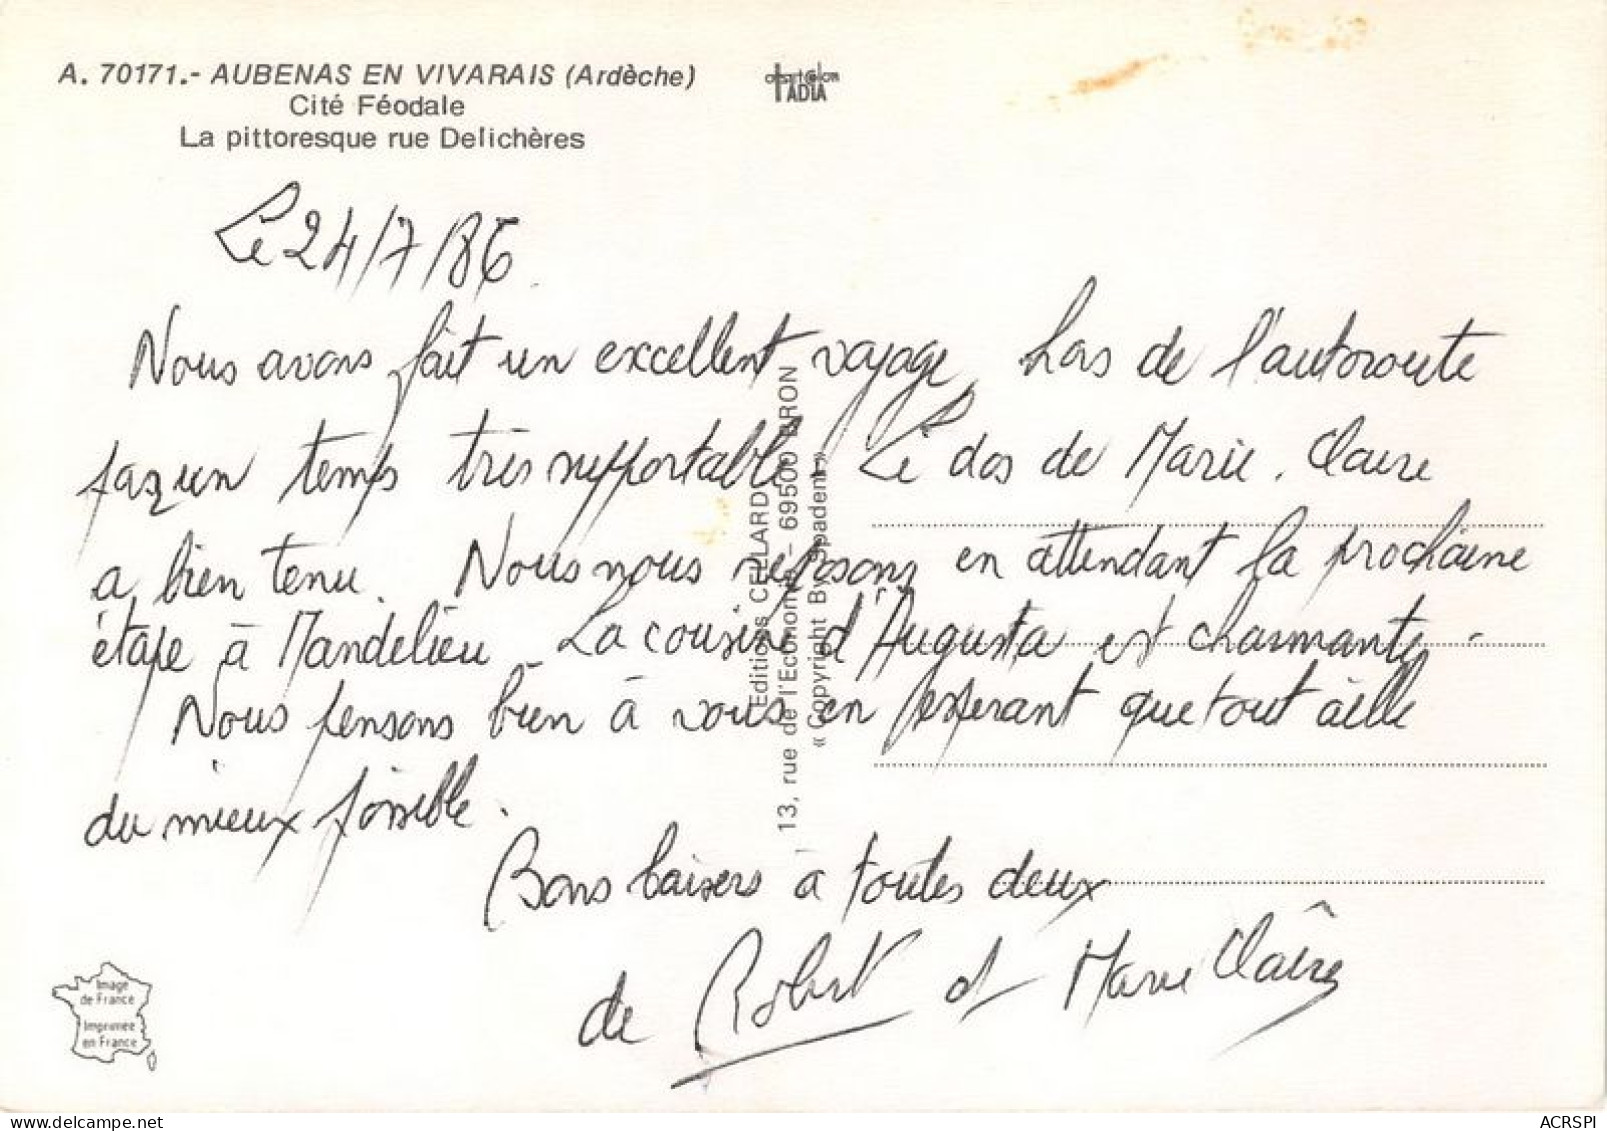 A. 70171.- AUBENAS EN VIVARAIS (Ardèche)
Cité Féodale
La pittoresque rue Delichères
Le 24/7/86.
Nous avons fait un excellent voyage, hors de l'autoroute
par un temps très supportable. Le dos de Marie. Claire
a bien tenu. Nous nous reposons en attendant la prochaine
étape à Mandelieu. La cousine d'Augusta est charmante.
Nous pensons bien à vous en espérant que tout aille
du mieux possible.
Bons baisers à toutes deux
de Robert et Marie Claire
Editions CELLARD
13, rue de l'Economie - 69500 BRON
« Copyright By Spadem »
Image
de France
Imprimée
en France
ACRSPI